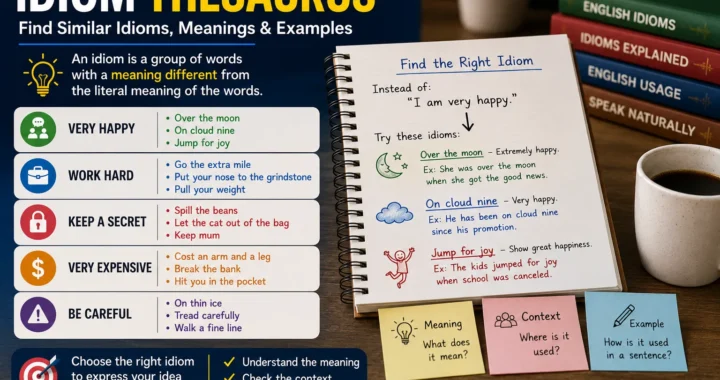 IDIOM THESAURUS
Find Similar Idioms, Meanings & Examples
An idiom is a group of words
with a meaning different from
the literal meaning of the words.
VERY HAPPY
• Over the moon
• On cloud nine
• Jump for joy
WORK HARD
• Go the extra mile
• Put your nose to the grindstone
• Pull your weight
KEEP A SECRET
• Spill the beans
• Let the cat out of the bag
• Keep mum
VERY EXPENSIVE
• Cost an arm and a leg
• Break the bank
• Hit you in the pocket
BE CAREFUL
• On thin ice
• Tread carefully
• Walk a fine line
Choose the right idiom
to express your idea
✓ Understand the meaning
✓ Check the context
Find the Right Idiom
Instead of:
"I am very happy."
Try these idioms:
Over the moon – Extremely happy.
Ex: She was over the moon
when she got the good news.
On cloud nine – Very happy.
Ex: He has been on cloud nine
since his promotion.
Jump for joy – Show great happiness.
Ex: The kids jumped for joy
when school was canceled.
ENGLISH IDIOMS
IDIOMS EXPLAINED
ENGLISH USAGE
SPEAK NATURALLY
Meaning
What does
it mean?
Context
Where is it
used?
Example
How is it used
in a sentence?